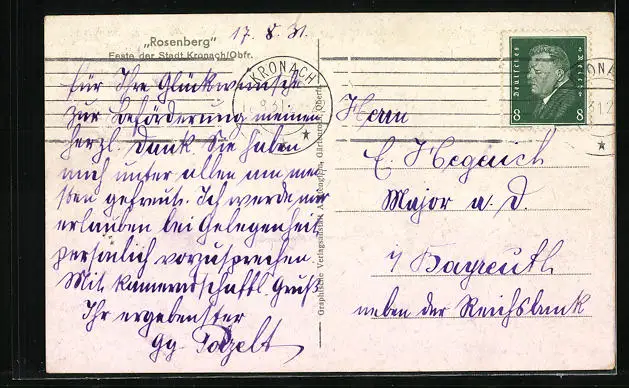 17. 8. 31.
„Rosenberg“
Feste der Stadt Kronach/Obfr.
für Ihre Glückwünsche
zur Beförderung meinen
herzl. Dank. Sie haben
mich unter allen am mei-
sten gefreut. Ich werde mir
erlauben bei Gelegenheit
persönlich vorzusprechen.
Mit kameradschaftl. Gruß
Ihr ergebenster
Gg.
Graphische Verlagsanstalt
KRONACH
Deutsches Reich
8 8
Herrn
E. Hegerich
Major a. D.
i/ Bayreuth
neben der Reichsbank